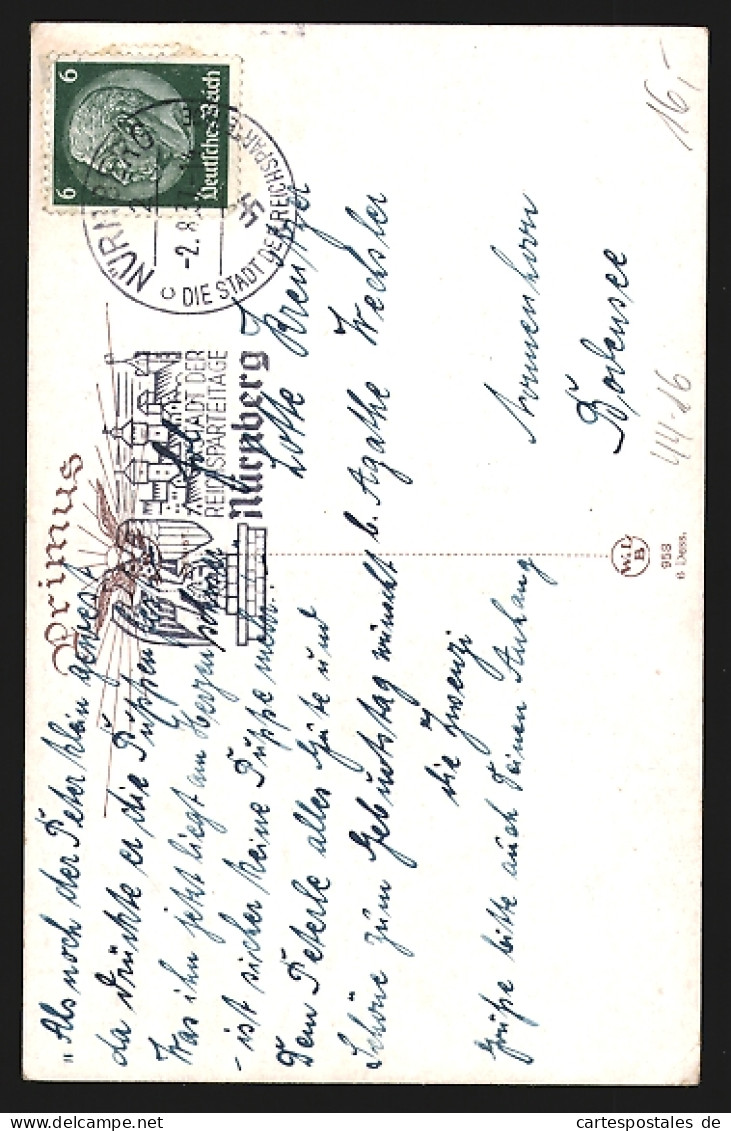 6
6
Deutsches Reich
NÜRNBERG 2
-2.8.37.
DIE STADT DER REICHSPARTEITAGE
STADT DER
REICHSPARTEITAGE
Nürnberg
Primus
„Als noch der Peter klein gewest
da drückte er die Puppen fest
Was ihn jetzt liegt am Herzen schwer"
- ist sicher keine Puppe mehr..
Dem Peterle alles Gute und
Schöne zum Geburtstag wünscht
die Zwenzi
Grüße bitte auch Deinen Anhang
Frl.
Lotte
b. Agathe Wechsler
Nonnenhorn
Bodensee
W.L.
B
958
6 Dess.
16,-
44-16
cartespostales de